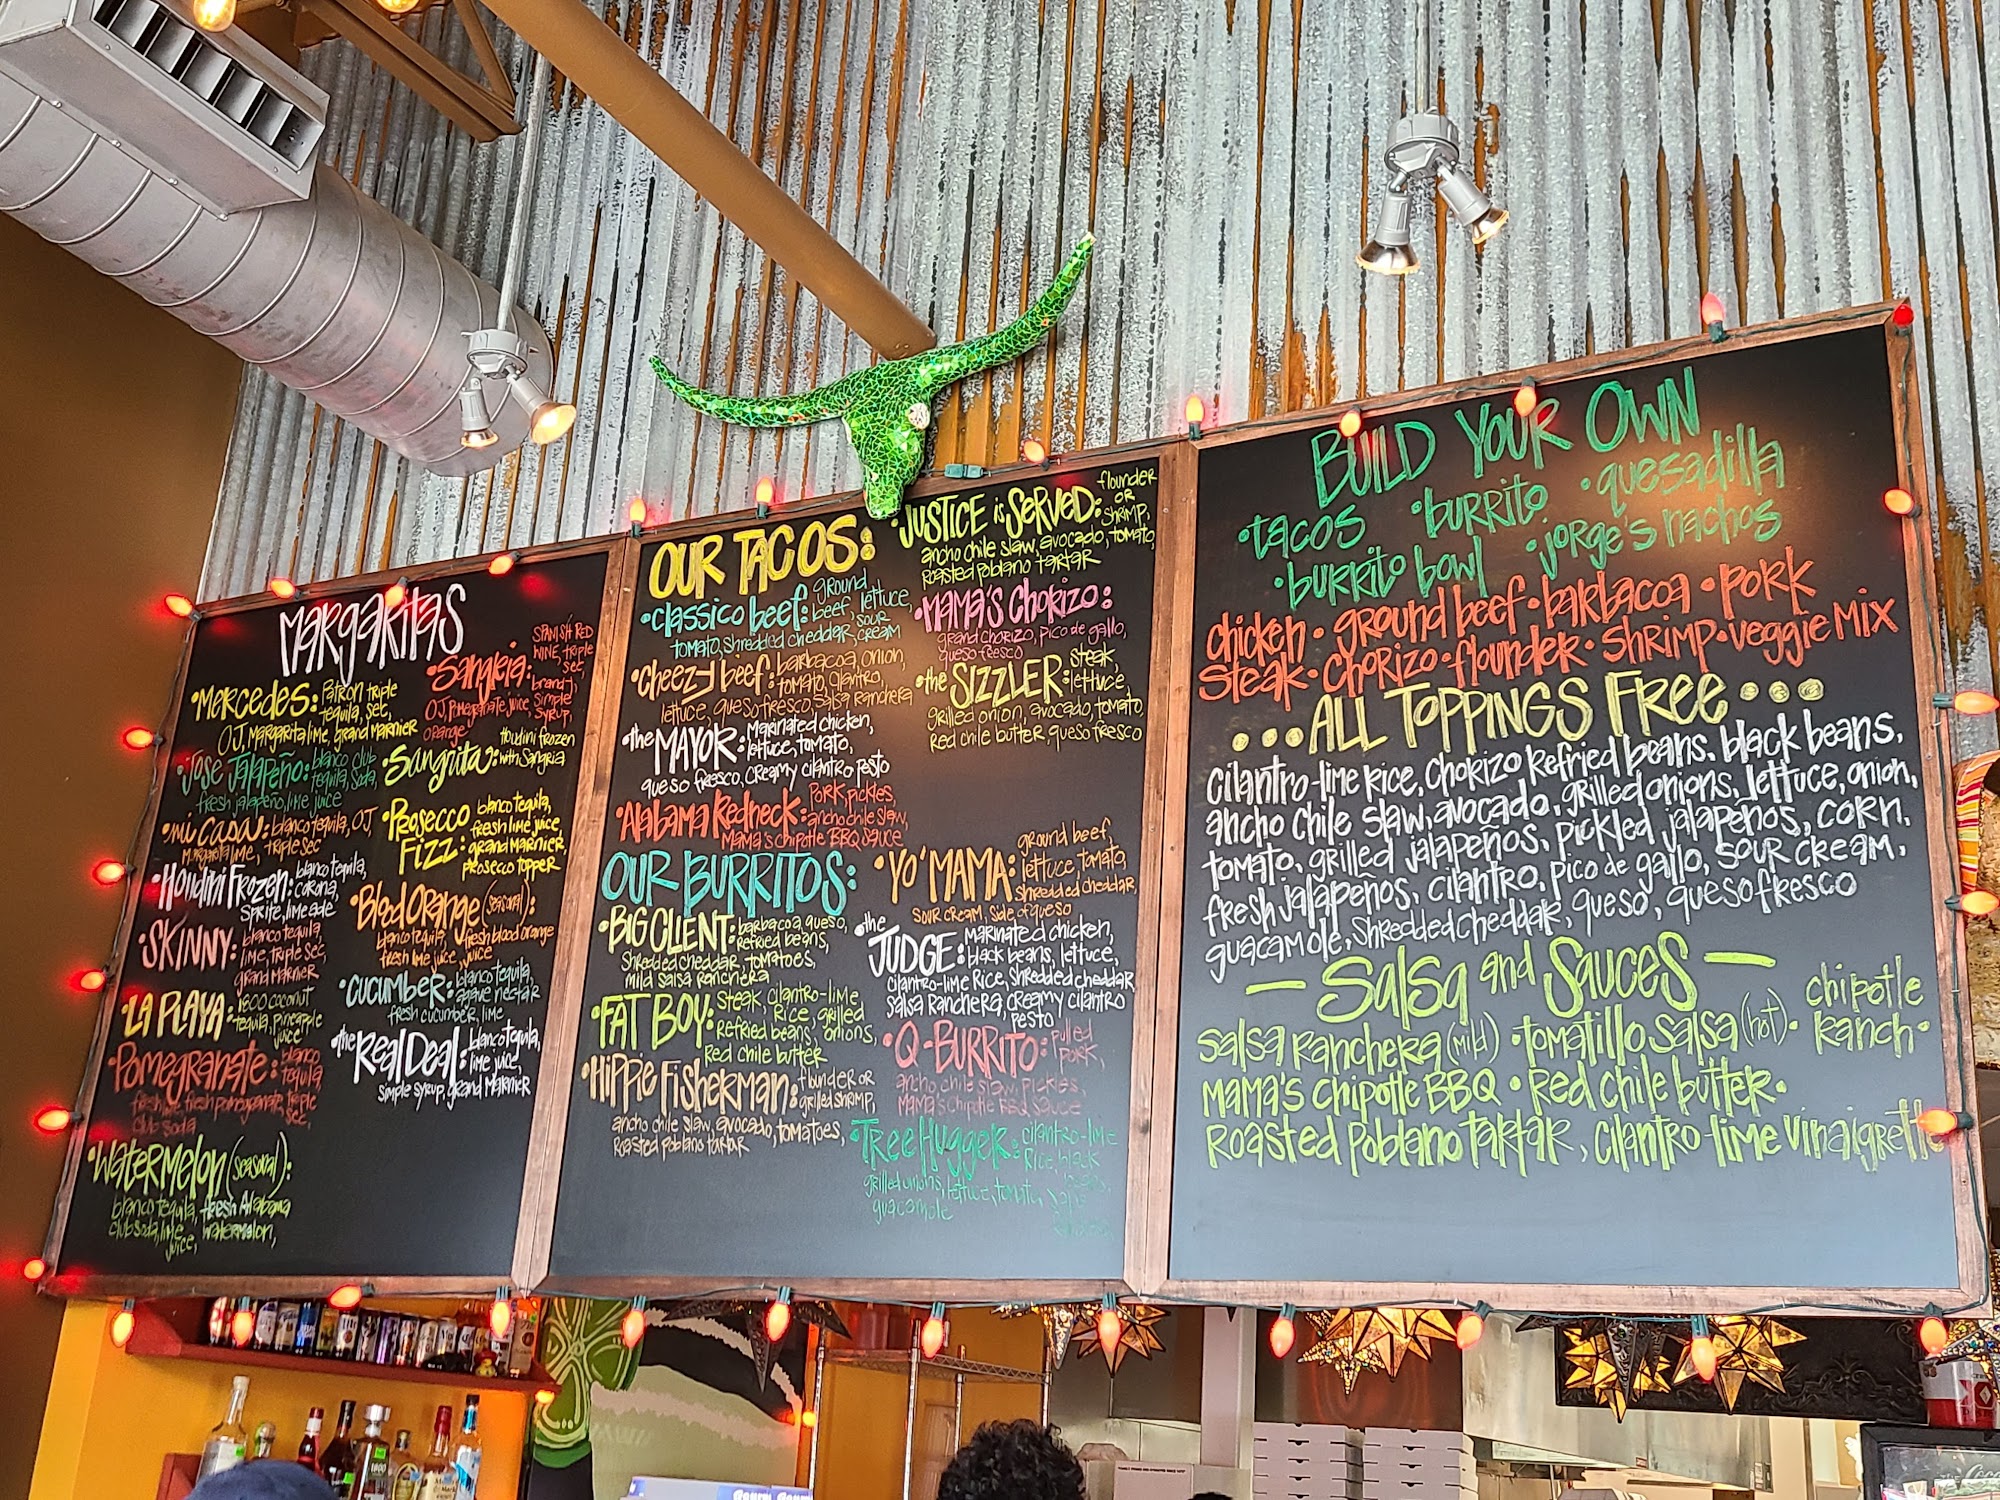 MARGARITAS
•MERCEDES: PATRON triple
tequila, sec,
OJ, MARGARITA lime, grand MARNIER
•JOSE JALAPEÑO: blanco club
tequila, soda,
fresh jalapeño, lime juice
•mi CASA: blanco tequila, OJ,
MARGARITA lime, triple sec
•HOUDINI FROZEN: blanco tequila,
CORONA,
Sprite, limeade
•SKINNY: blanco tequila,
lime, triple sec,
grand MARNIER
•LA PLAYA: 1800 coconut
tequila, pineapple
juice
•POMEGRANATE: blanco
tequila
fresh lime, fresh pomegranate, triple
sec,
club soda
•WATERMELON (seasonal):
blanco tequila, fresh Alabama
club soda, lime watermelon,
juice,
•Sangria: SPANISH RED
WINE, triple
sec,
brandy,
OJ, POMEGRANATE juice, simple
syrup,
orange
•Sangrita: Houdini frozen
with Sangria
•PROSECCO blanco tequila,
fresh lime juice,
FIZZ: grand MARNIER,
prosecco topper
•Blood ORANGE (seasonal):
blanco tequila, fresh blood orange
fresh lime juice, juice
•CUCUMBER: blanco tequila,
agave nectar
fresh cucumber, lime
•the REAL DEAL: blanco tequila,
lime juice,
simple syrup, grand MARNIER
OUR TACOS:
•Classico beef: ground
beef, lettuce,
tomato, shredded cheddar, sour
cream
•Cheezy beef: barbacoa, onion,
tomato, cilantro,
lettuce, queso fresco, salsa ranchera
•the MAYOR: Marinated chicken,
lettuce, tomato,
queso fresco, creamy cilantro pesto
•ALABAMA REDNECK: PORK, pickles,
ancho chile slaw,
MAMA'S chipotle BBQ sauce
•JUSTICE is SERVED: flounder
or
shrimp,
ancho chile slaw, avocado, tomato,
Roasted poblano tartar
•MAMA'S CHORIZO:
grand chorizo, pico de gallo,
queso fresco
•the SIZZLER: steak,
lettuce,
grilled onion, avocado, tomato,
Red chile butter, queso fresco
OUR BURRITOS:
•BIG CLIENT: barbacoa, queso,
refried beans,
shredded cheddar, tomatoes,
mild salsa ranchera
•FAT BOY: steak, cilantro-lime
Rice, grilled
refried beans, onions,
Red chile butter
•HIPPIE FISHERMAN: flounder or
grilled shrimp,
ancho chile slaw, avocado, tomatoes,
Roasted poblano tartar
•YO' MAMA: ground beef,
lettuce, tomato,
shredded cheddar,
sour cream, side of queso
•the JUDGE: marinated chicken,
black beans, lettuce,
cilantro-lime Rice, shredded cheddar
salsa Ranchera, creamy cilantro
pesto
•Q-BURRITO: pulled
pork,
ancho chile slaw, pickles,
MAMA'S chipotle BBQ sauce
•TREE HUGGER: cilantro-lime
Rice, black
grilled onions, lettuce, tomato,
guacamole
BUILD YOUR OWN
•tacos •burrito •quesadilla
•burrito bowl •jorge's nachos
chicken • ground beef • barbacoa • PORK
Steak • Chorizo • flounder • Shrimp • veggie MIX
...ALL TOPPINGS FREE...
cilantro-lime Rice, Chorizo Refried beans, black beans,
ancho chile slaw, avocado, grilled onions, lettuce, onion,
tomato, grilled jalapeños, pickled jalapeños, corn,
fresh jalapeños, cilantro, pico de gallo, sour cream,
guacamole, shredded cheddar, queso, queso fresco
— Salsa and Sauces —
Salsa Ranchera (mild) • tomatillo salsa (hot) • chipotle
Ranch •
MAMA'S chipotle BBQ • Red chile butter •
Roasted poblano tartar, cilantro-lime vinaigrette
1800